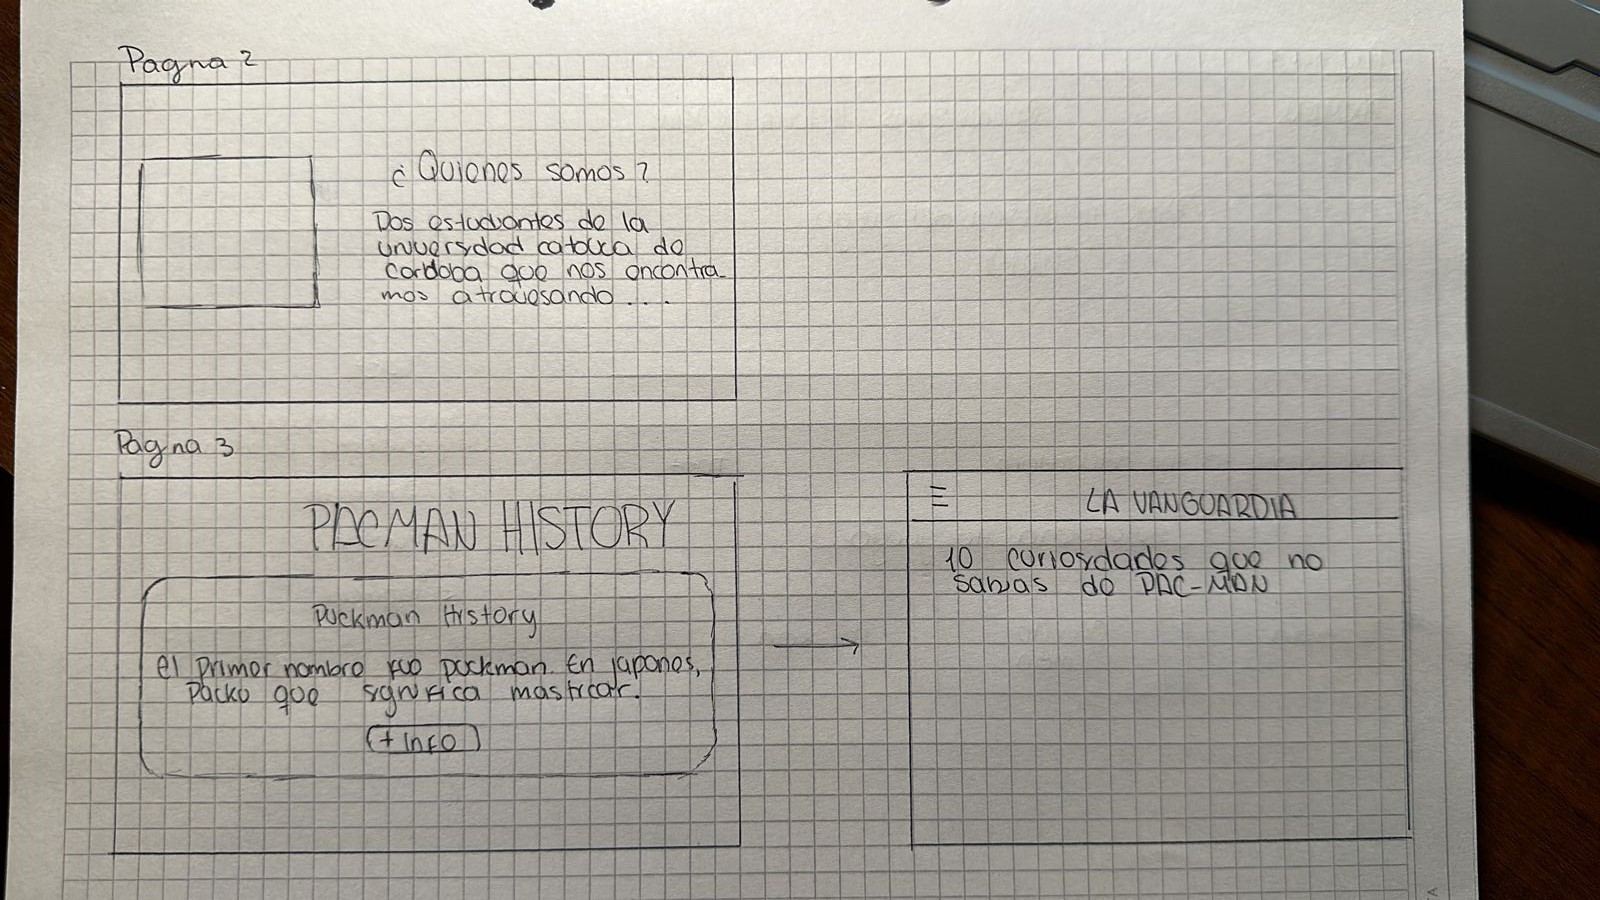 Pagina 2
¿Quienes somos?
Dos estudiantes de la
universidad catolica de
cordoba que nos encontra-
mos atravesando...
Pagina 3
PACMAN HISTORY
Puckman History
el primer nombre fue puckman. En japones,
Packu que significa masticar.
+ info
LA VANGUARDIA
10 curiosidades que no
sabias de PAC-MAN